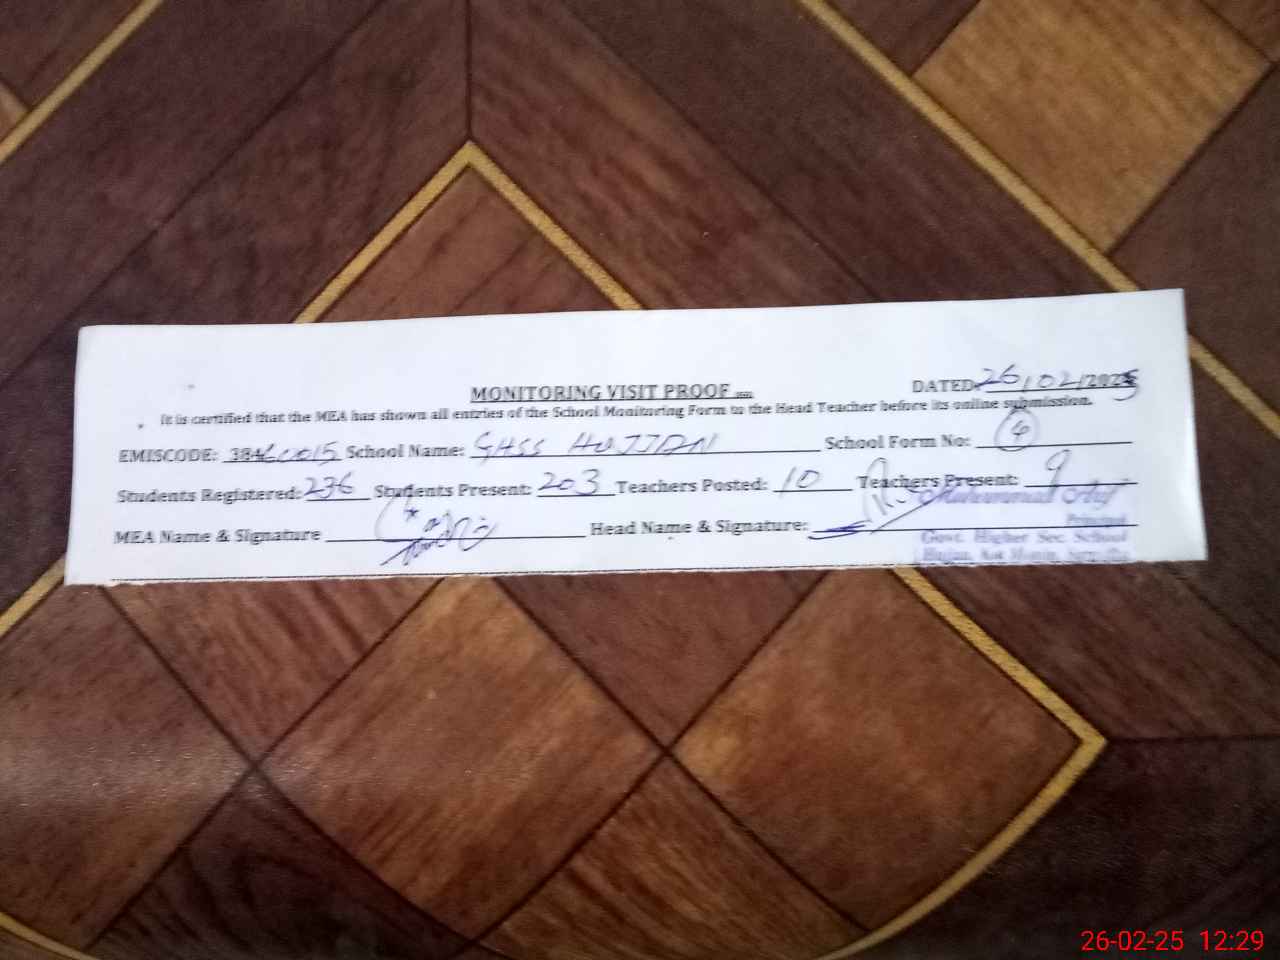 MONITORING VISIT PROOF
DATED: 26/02/2025
It is certified that the MEA has shown all entries of the School Monitoring Form to the Head Teacher before its online submission.
EMISCODE: 38460015 School Name: GHSS HUJJAN School Form No: 4
Students Registered: 236 Students Present: 203 Teachers Posted: 10 Teachers Present: 9
MEA Name & Signature Head Name & Signature:
Muhammad Arif
Principal
Govt. Higher Sec. School
Hujjan, Kot Momin,
26-02-25 12:29